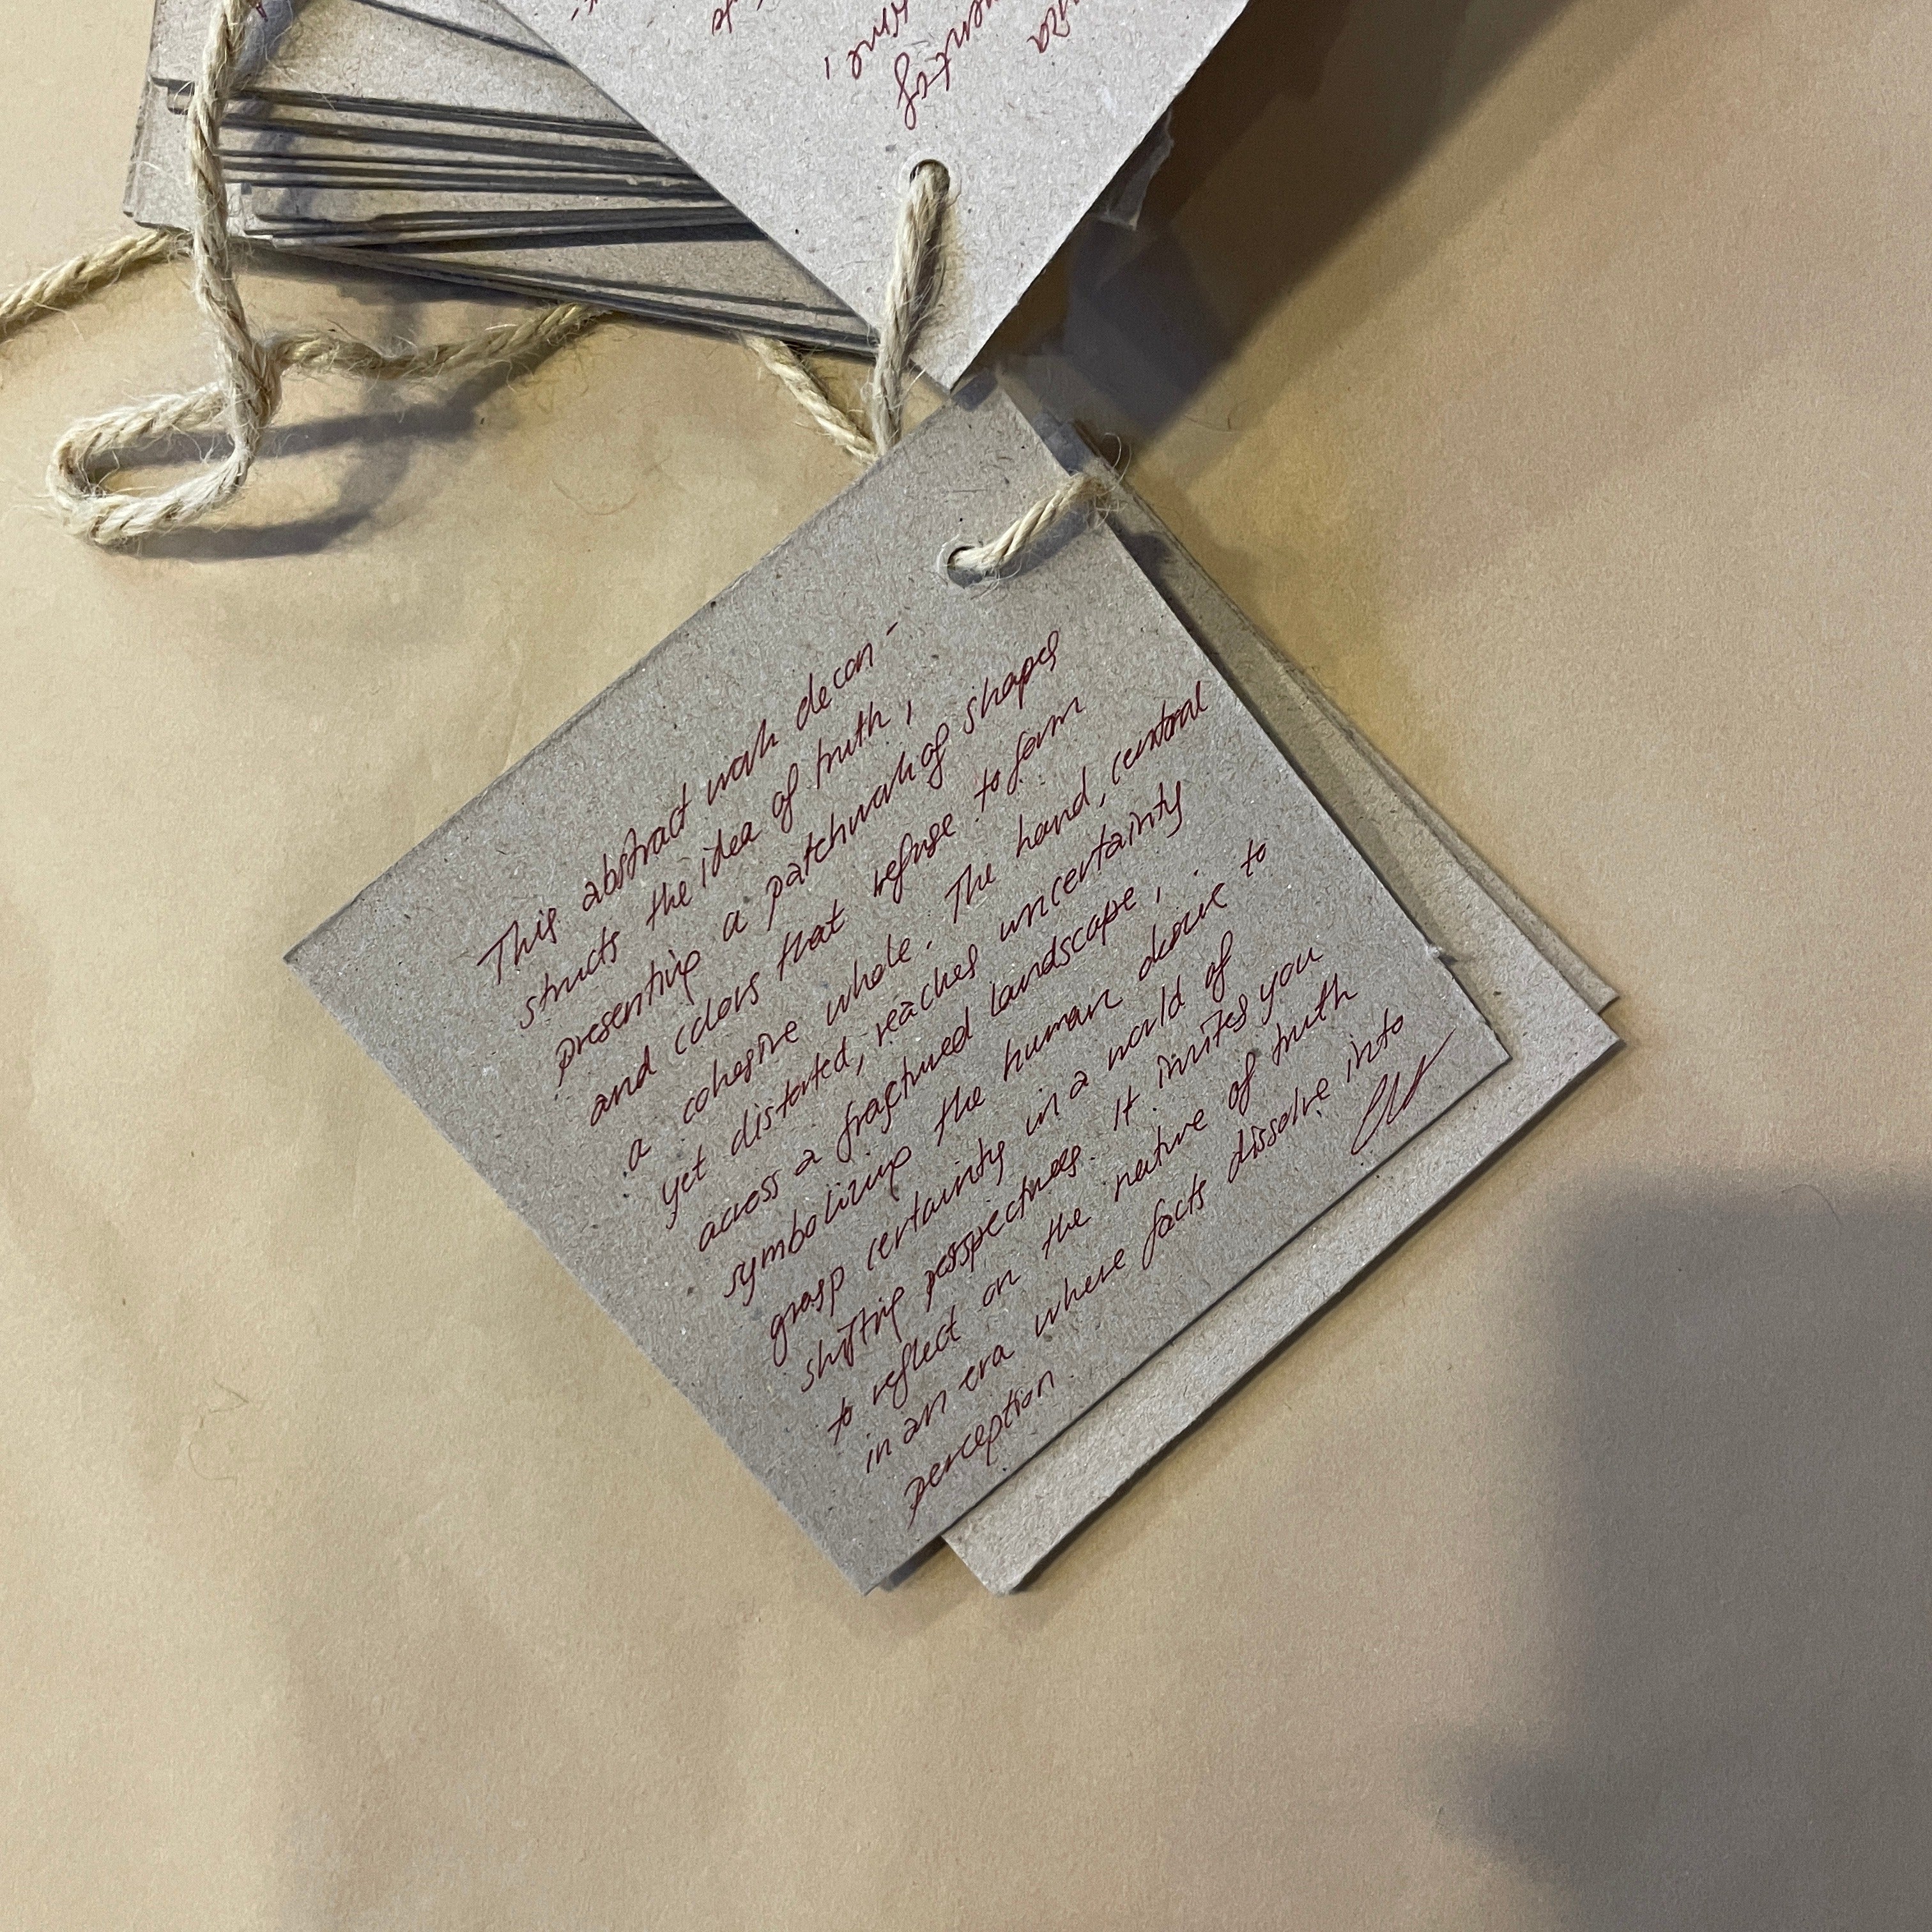 This abstract work decon-
structs the idea of truth,
presenting a patchwork of shapes
and colors that refuse to form
a cohesive whole. The hand, central
yet distorted, reaches uncertainty
across a fractured landscape,
symbolizing the human desire to
grasp certainty in a world of
shifting perspectives. It invites you
to reflect on the nature of truth
in an era where facts dissolve into
perception.